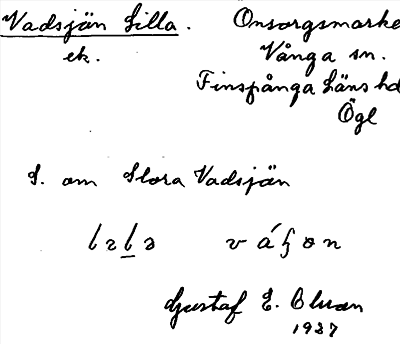 Vadsjön Lilla. Onsorgsmarke
ek. Vånga sn.
Finspånga läns hd
Ögl
S. om Stora Vadsjön
Gustaf E. Bluun
1937